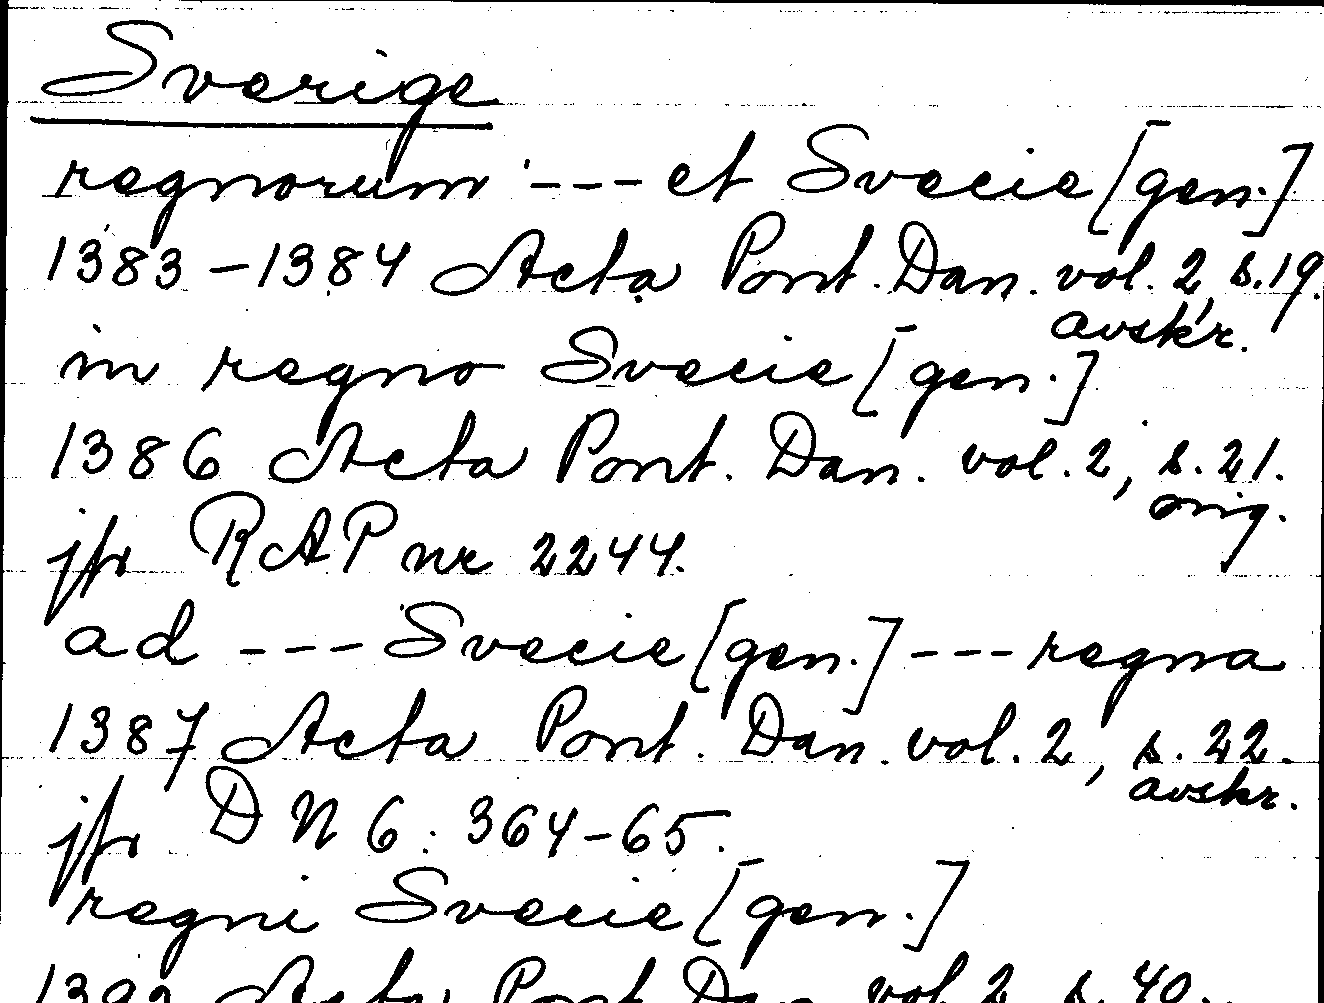 Sverige
regnorum --- et Svecie [gen.]
1383-1384 Acta Pont. Dan. vol. 2, s. 19.
avskr.
in regno Svecie [gen.]
1386 Acta Pont. Dan. vol. 2, s. 21.
orig.
jfr RAP nr 2244.
ad --- Svecie [gen.] --- regna
1387 Acta Pont. Dan. vol. 2, s. 22.
avskr.
jfr DN 6: 364-65.
regni Svecie [gen.]
Acta Pont. Dan. vol. 2, s. 40.